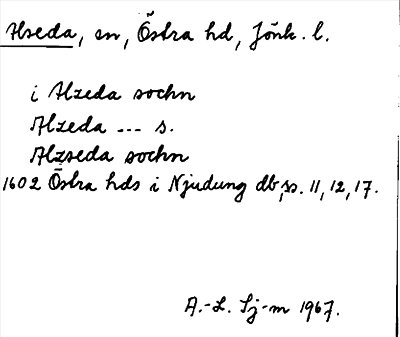 Alseda, sn, Östra hd, Jönk. l.
i Alzeda sochn
Alzeda ... s.
Alzseda sochn
1602 Östra hds i Njudung db, ss. 11, 12, 17.
A.-L. Sj-m 1967.